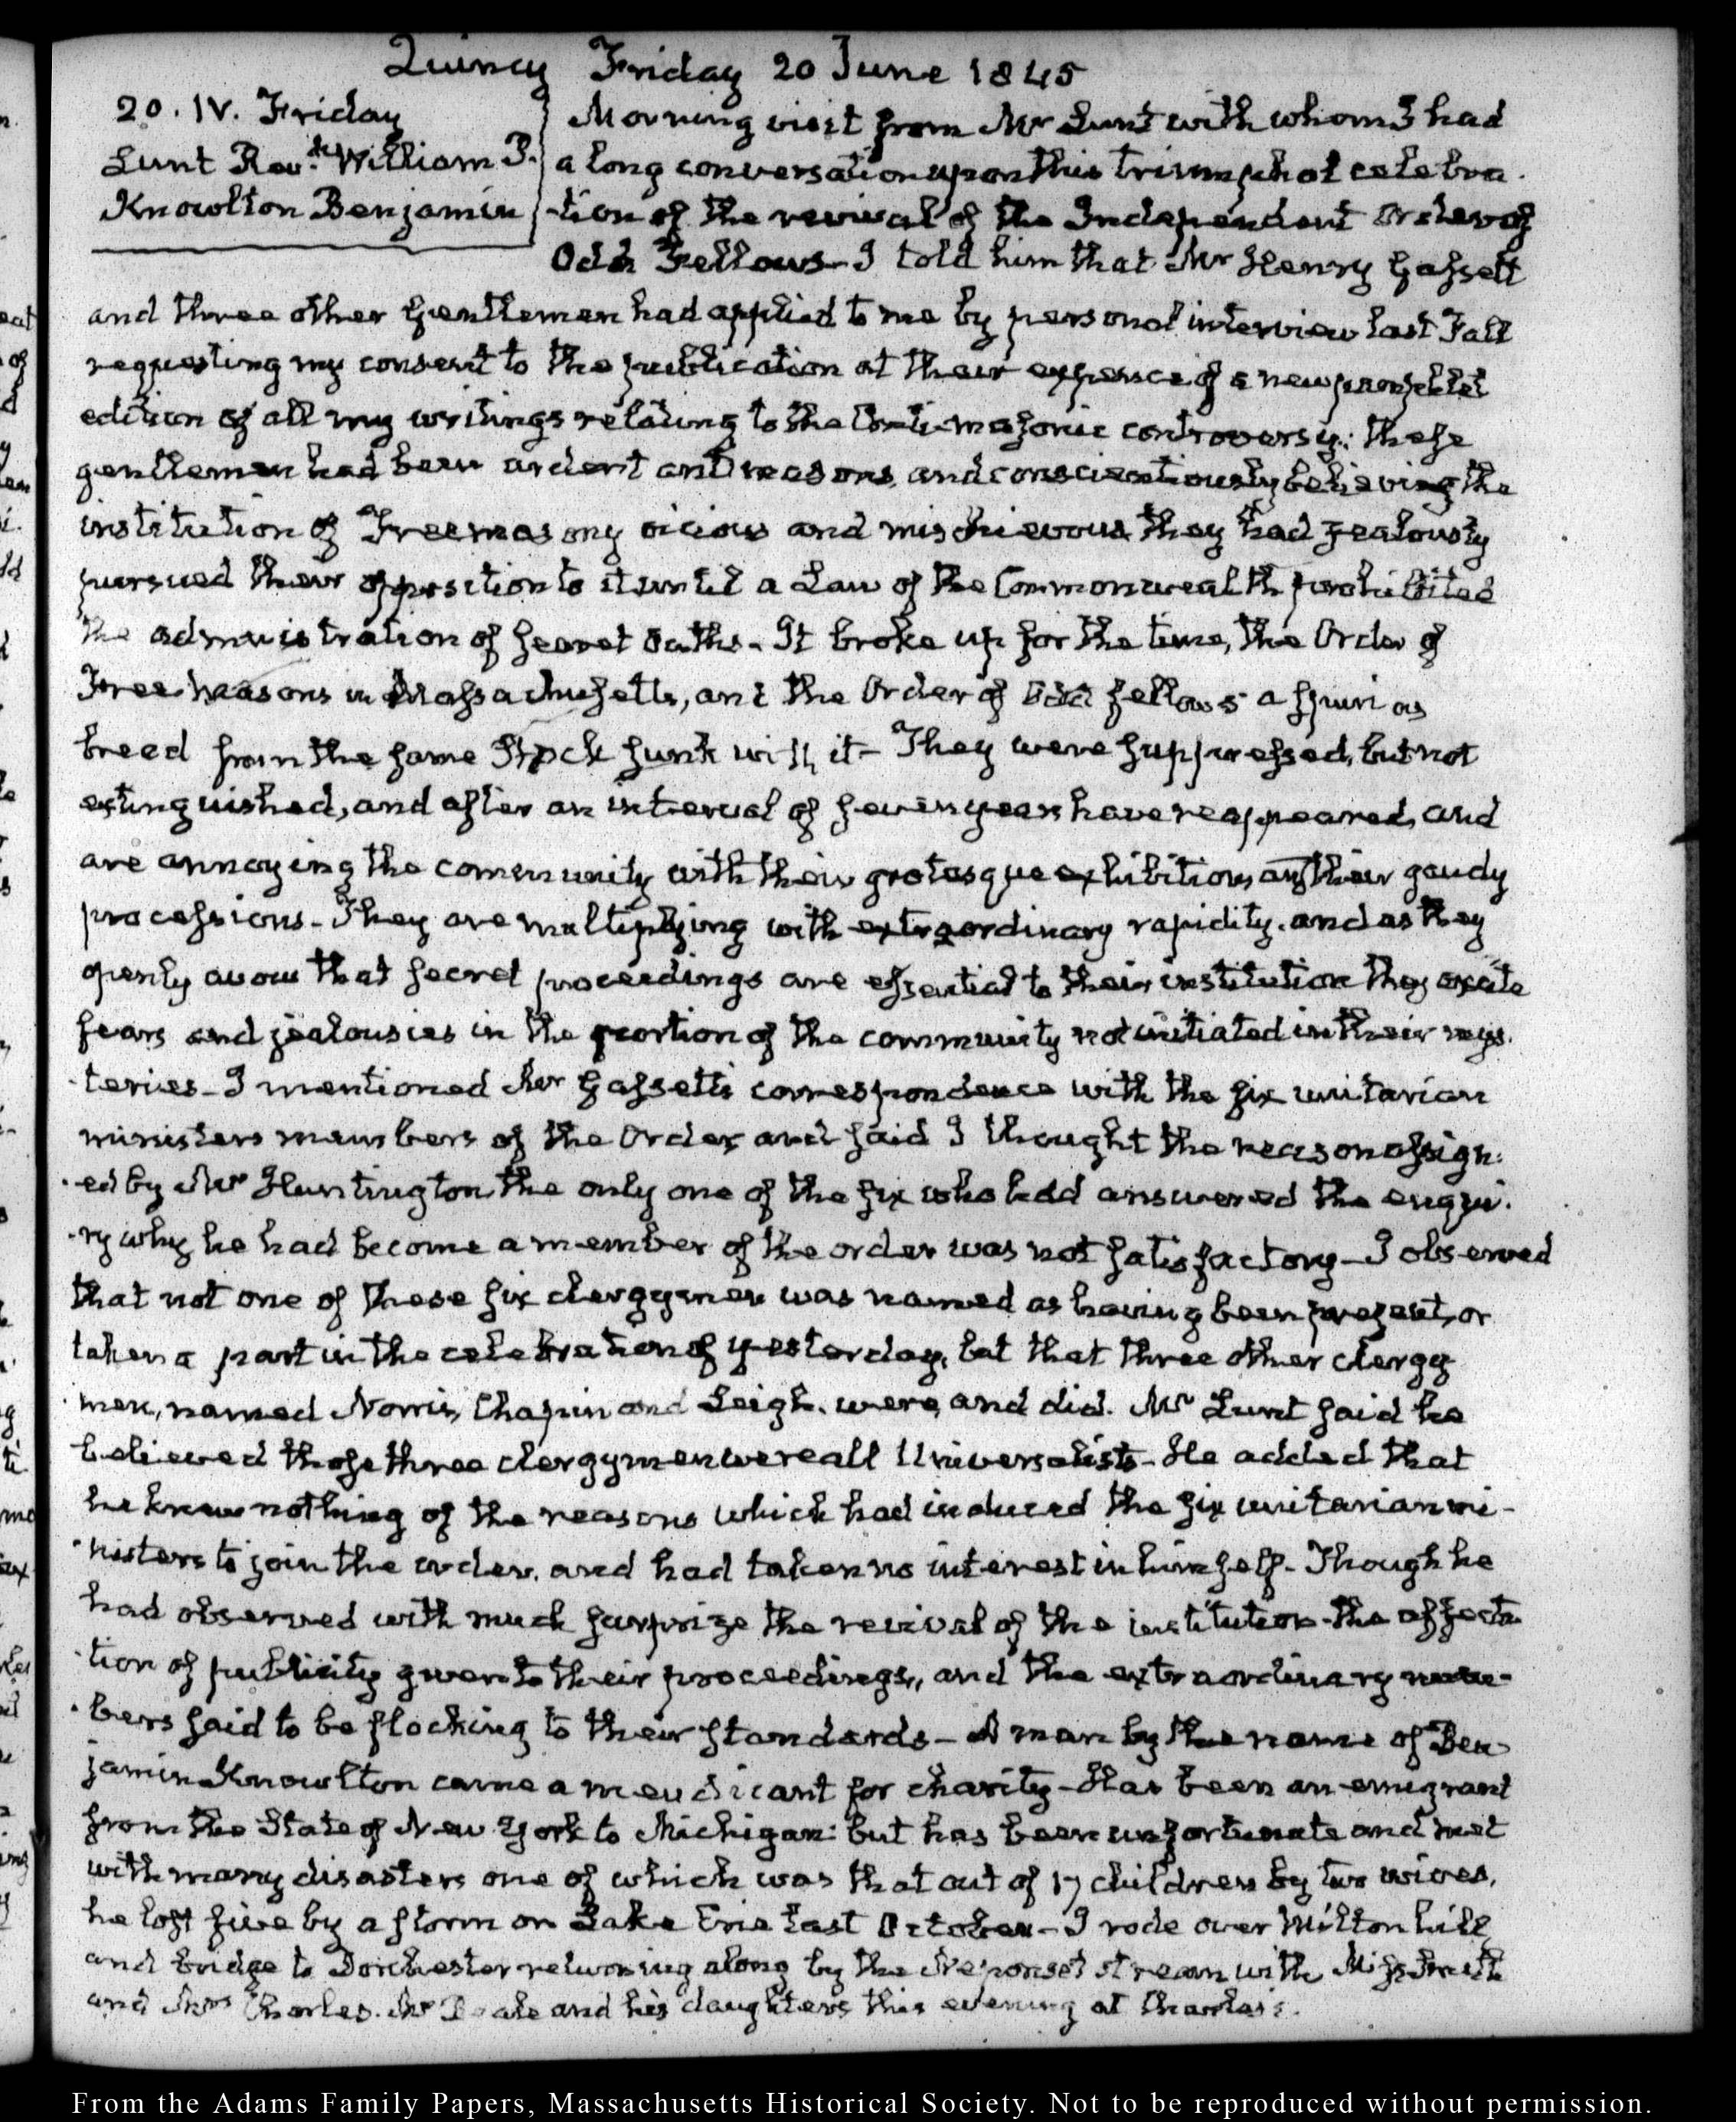 Quincy Friday 20 June 1845
20. IV. Friday
Lunt Revd. William P.
Knowlton Benjamin
Morning visit from Mr Lunt with whom I had
a long conversation upon this triumphal celebra-
-tion of the revival of the Independent Order of
Odd Fellows- I told him that Mr Henry Gassett
and three other Gentlemen had applied to me by personal interview last Fall
requesting my consent to the publication at their expence of a new pamphlet
edition of all my writings relating to the Anti-masonic controversy: these
gentlemen had been ardent antimasons, and conscientiously believing the
institution of Freemasonry vicious and mischievous they had zealously
pursued their opposition to it until a Law of the Commonwealth prohibited
the administration of secret Oaths- It broke up for the time, the Order of
Free Masons in Massachusetts, and the Order of Odd fellows a spurious
breed from the same Stock sunk with it- They were suppressed, but not
extinguished, and after an interval of seven years have reappeared, and
are annoying the community with their grotesque exhibitions and their gaudy
processions- They are multiplying with extraordinary rapidity, and as they
openly avow that secret proceedings are essential to their institution they excite
fears and jealousies in the portion of the community not initiated in their mys-
-teries- I mentioned Mr Gassetts correspondence with the six unitarian
ministers members of the Order and said I thought the reason assign-
-ed by Mr Huntington the only one of the six who had answered the enqui-
-ry why he had become a member of the order was not satisfactory- I observed
that not one of these six clergymen was named as having been present, or
taken a part in the celebration of yesterday, but that three other clergy
-men, named Norris, Chapin and Leigh, were, and did. Mr Lunt said he
believed those three clergymen were all Universalists- He added that
he knew nothing of the reasons which had induced the six unitarian mi-
-nisters to join the order, and had taken no interest in himself- Though he
had observed with much surprize the revival of the institution- the affecta
-tion of publicity given to their proceedings, and the extraordinary num-
-bers said to be flocking to their standards- A man by the name of Ben
jamin Knowlton came a mendicant for charity- Has been an emigrant
from the State of New York to Michigan: but has been unfortunate and met
with many disasters one of which was that out of 17 children by two wives,
he lost five by a storm on Lake Erie last October- I rode over Milton hill
and bridge to Dorchester returning along by the Neponset stream with Miss Smith
and Mrs Charles. Mr and his daughters this evening at Charles's.
From the Adams Family Papers, Massachusetts Historical Society. Not to be reproduced without permission.